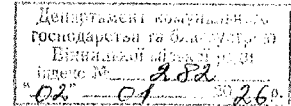 Департамент комунального
господарства та благоустрою
Вінницької міської ради
індекс № 282
"02" 01 2026р.